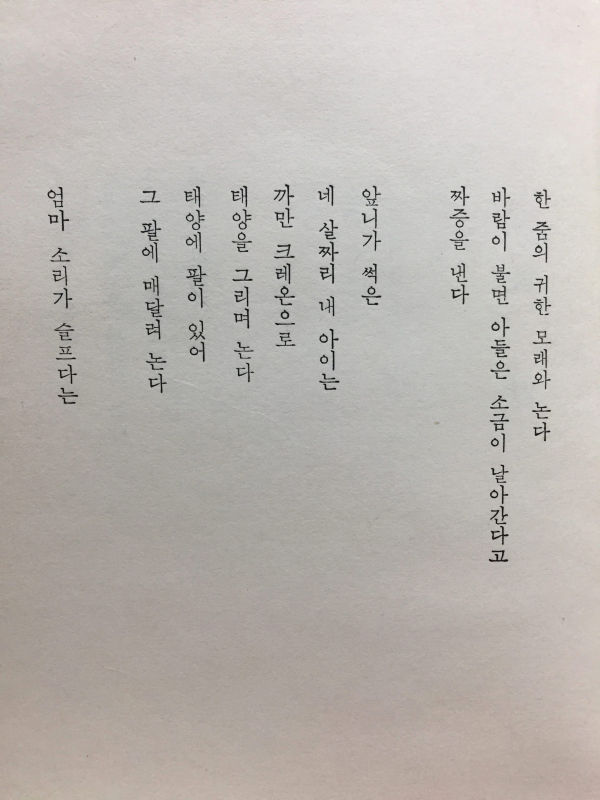 한 줌의 귀한 모래와 논다
바람이 불면 아들은 소금이 날아간다고
짜증을 낸다
앞니가 썩은
네 살짜리 내 아이는
까만 크레온으로
태양을 그리며 논다
태양에 팔이 있어
그 팔에 매달려 논다
엄마 소리가 슬프다는